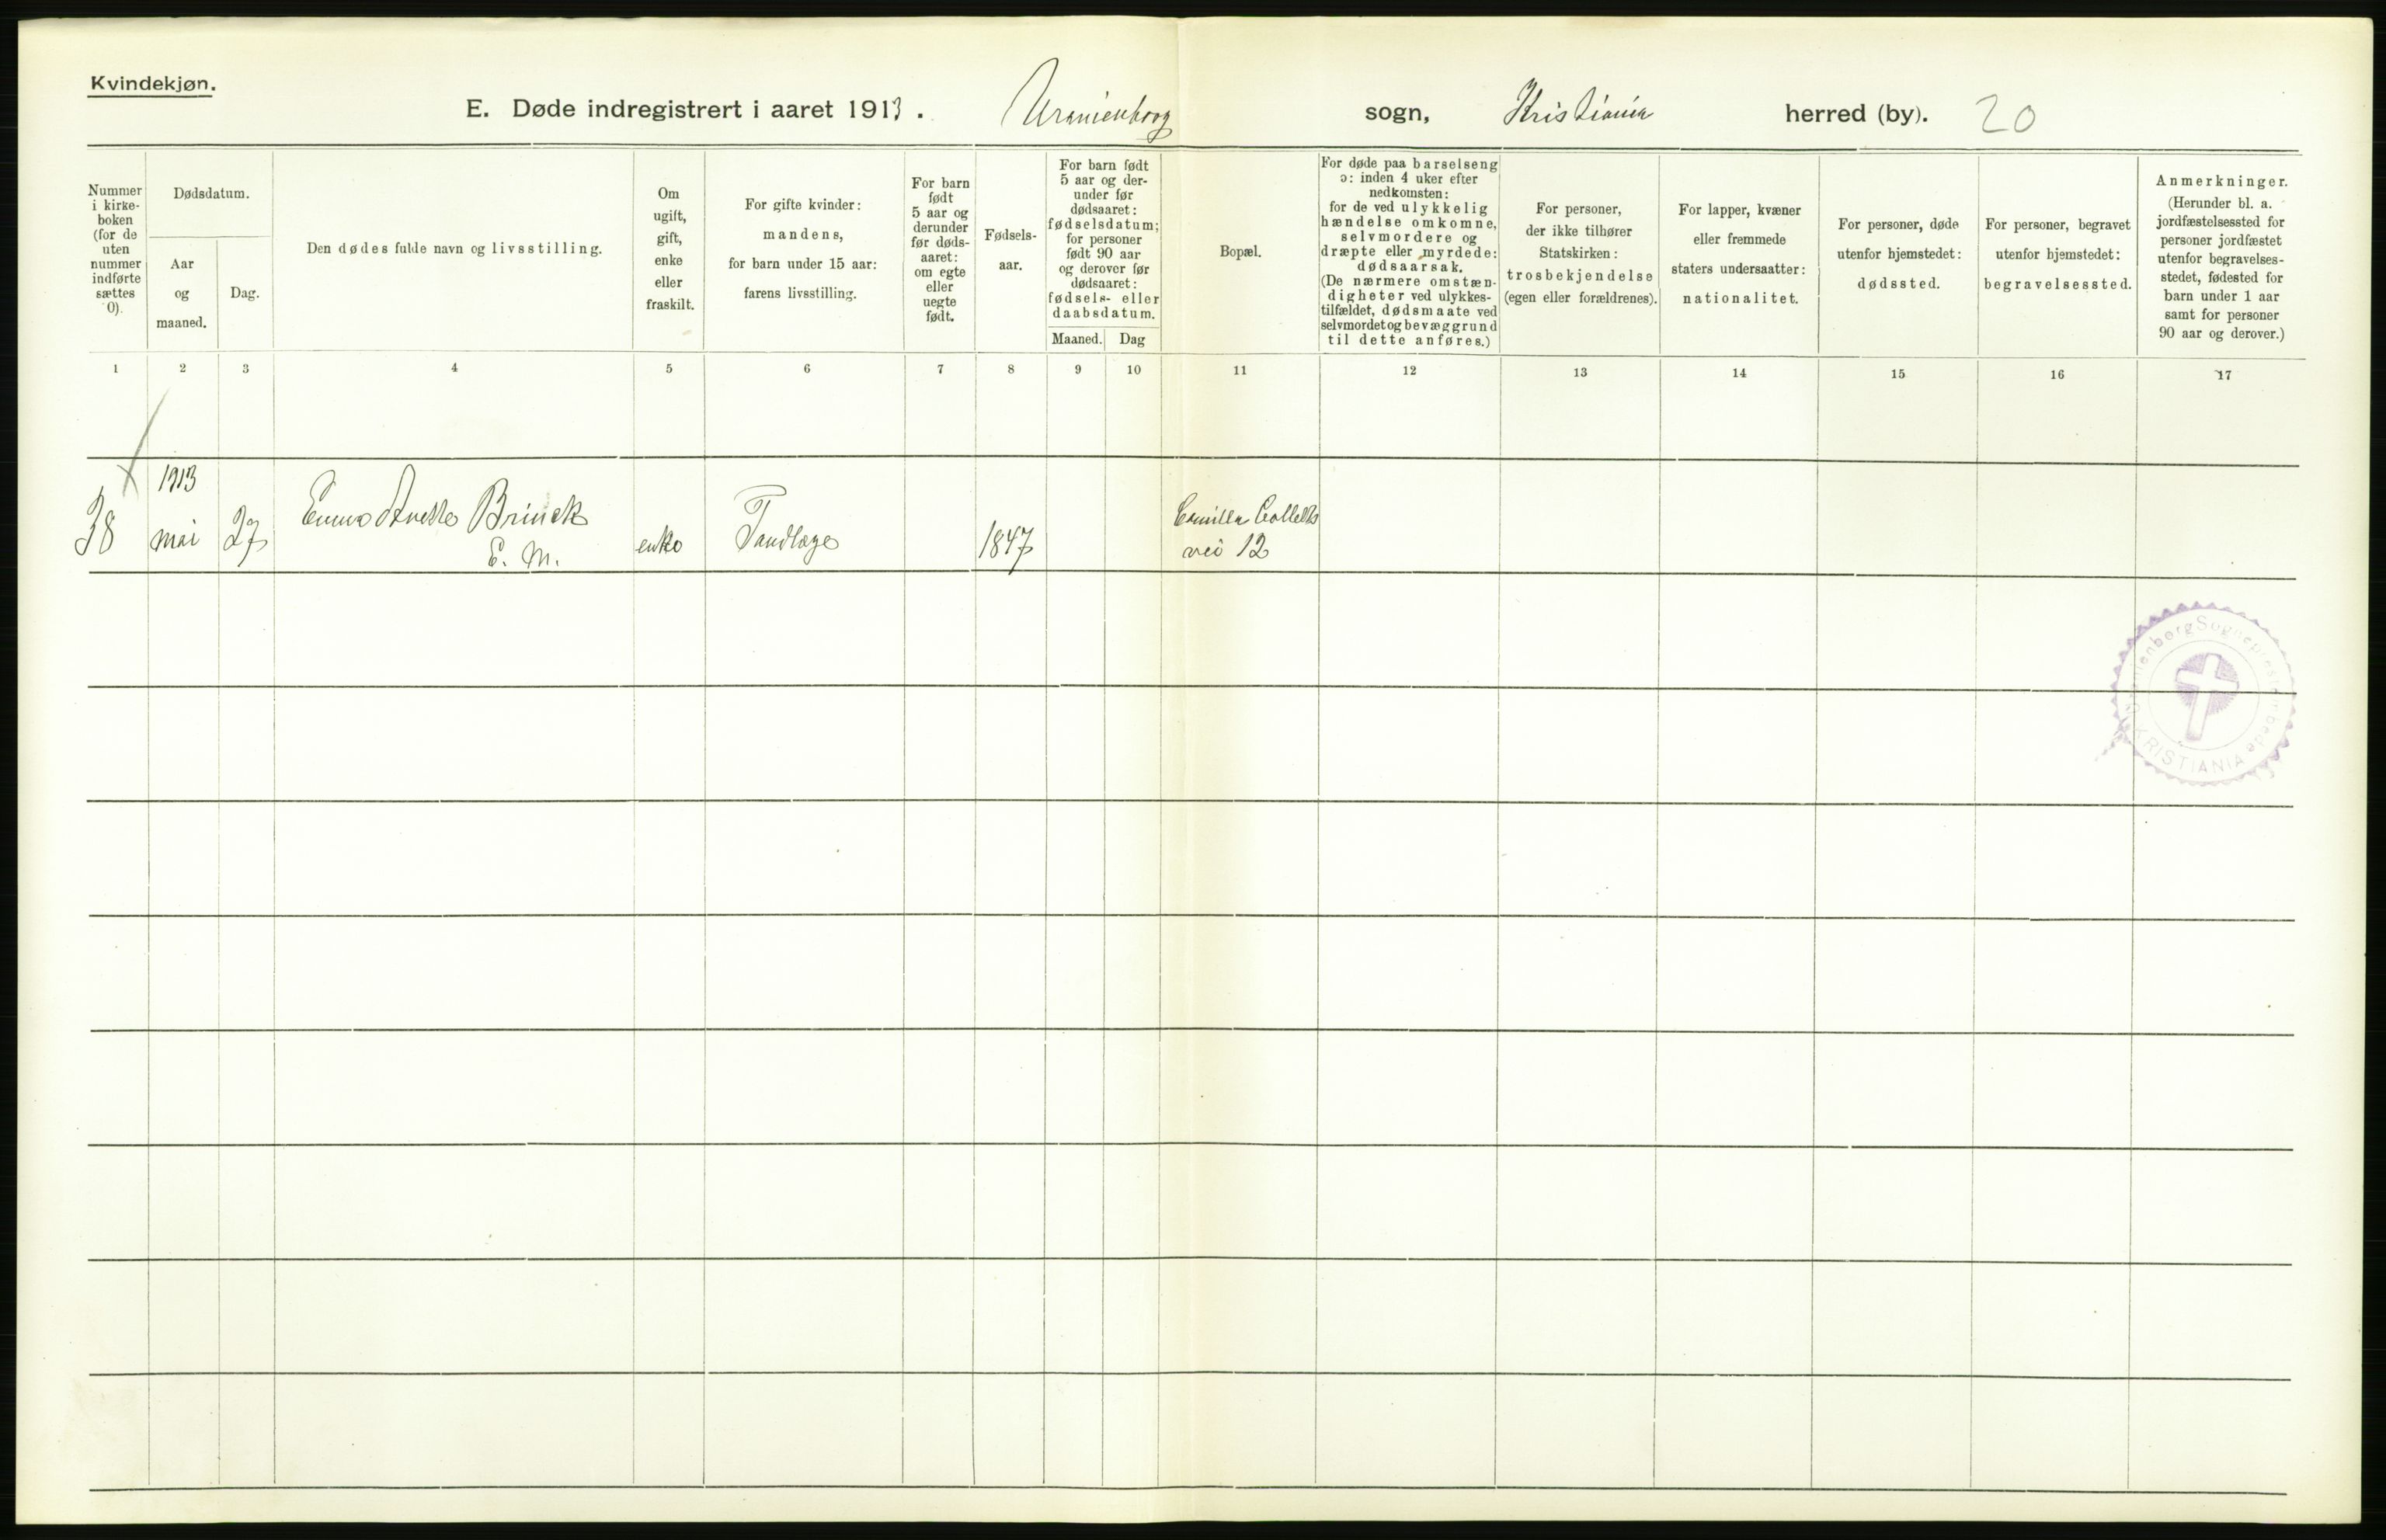 Kvindekjøn.
E. Døde indregistrert i aaret 1913. Uranienborg sogn, Kristiania herred (by). 20
Nummer
i kirke-
boken
(for de
uten
nummer
indførte
sættes
0).
Dødsdatum.
Aar
og
maaned.
Dag.
Den dødes fulde navn og livsstilling.
Om
ugift,
gift,
enke
eller
fraskilt.
For gifte kvinder:
mandens,
for barn under 15 aar:
farens livsstilling.
For barn
født
5 aar og
derunder
før døds-
aaret:
om egte
eller
uegte
født.
Fødsels-
aar.
For barn født
5 aar og der-
under før
dødsaaret:
fødselsdatum;
for personer
født 90 aar
og derover før
dødsaaret:
fødsels- eller
daabsdatum.
Maaned. Dag
Bopæl.
For døde paa barselseng
ɔ: inden 4 uker efter
nedkomsten:
for de ved ulykkelig
hændelse omkomne,
selvmordere og
dræpte eller myrdede:
dødsaarsak.
(De nærmere omstæn-
digheter ved ulykkes-
tilfældet, dødsmaate ved
selvmordet og bevæggrund
til dette anføres.)
For personer,
der ikke tilhører
Statskirken:
trosbekjendelse
(egen eller forældrenes).
For lapper, kvæner
eller fremmede
staters undersaatter:
nationalitet.
For personer, døde
utenfor hjemstedet:
dødssted.
For personer, begravet
utenfor hjemstedet:
begravelsessted.
Anmerkninger.
(Herunder bl. a.
jordfæstelsessted for
personer jordfæstet
utenfor begravelses-
stedet, fødested for
barn under 1 aar
samt for personer
90 aar og derover.)
1 2 3 4 5 6 7 8 9 10 11 12 13 14 15 16 17
1913
38 mai 27 Emma Anette Brinck
E. M.
enke Tandlæge 1847 Camilla Colletts
vei 12
Uranienborg Sogneprestembede
KRISTIANIA